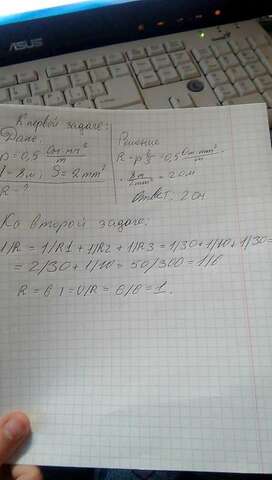 ASUS
К первой задаче:
Дано:
ρ = 0,5 Ом·mm²/m
l = 8м; S = 2mm²
R - ?
Решение
R = ρ l/S = 0,5 Ом·mm²/m ·
· 8м/2mm² = 2 Ом
Ответ: 2 Ом
Ко второй задаче:
1/R = 1/R1 + 1/R2 + 1/R3 = 1/30 + 1/10 + 1/30 =
= 2/30 + 1/10 = 50/300 = 1/6
R = 6 I = U/R = 6/6 = 1.